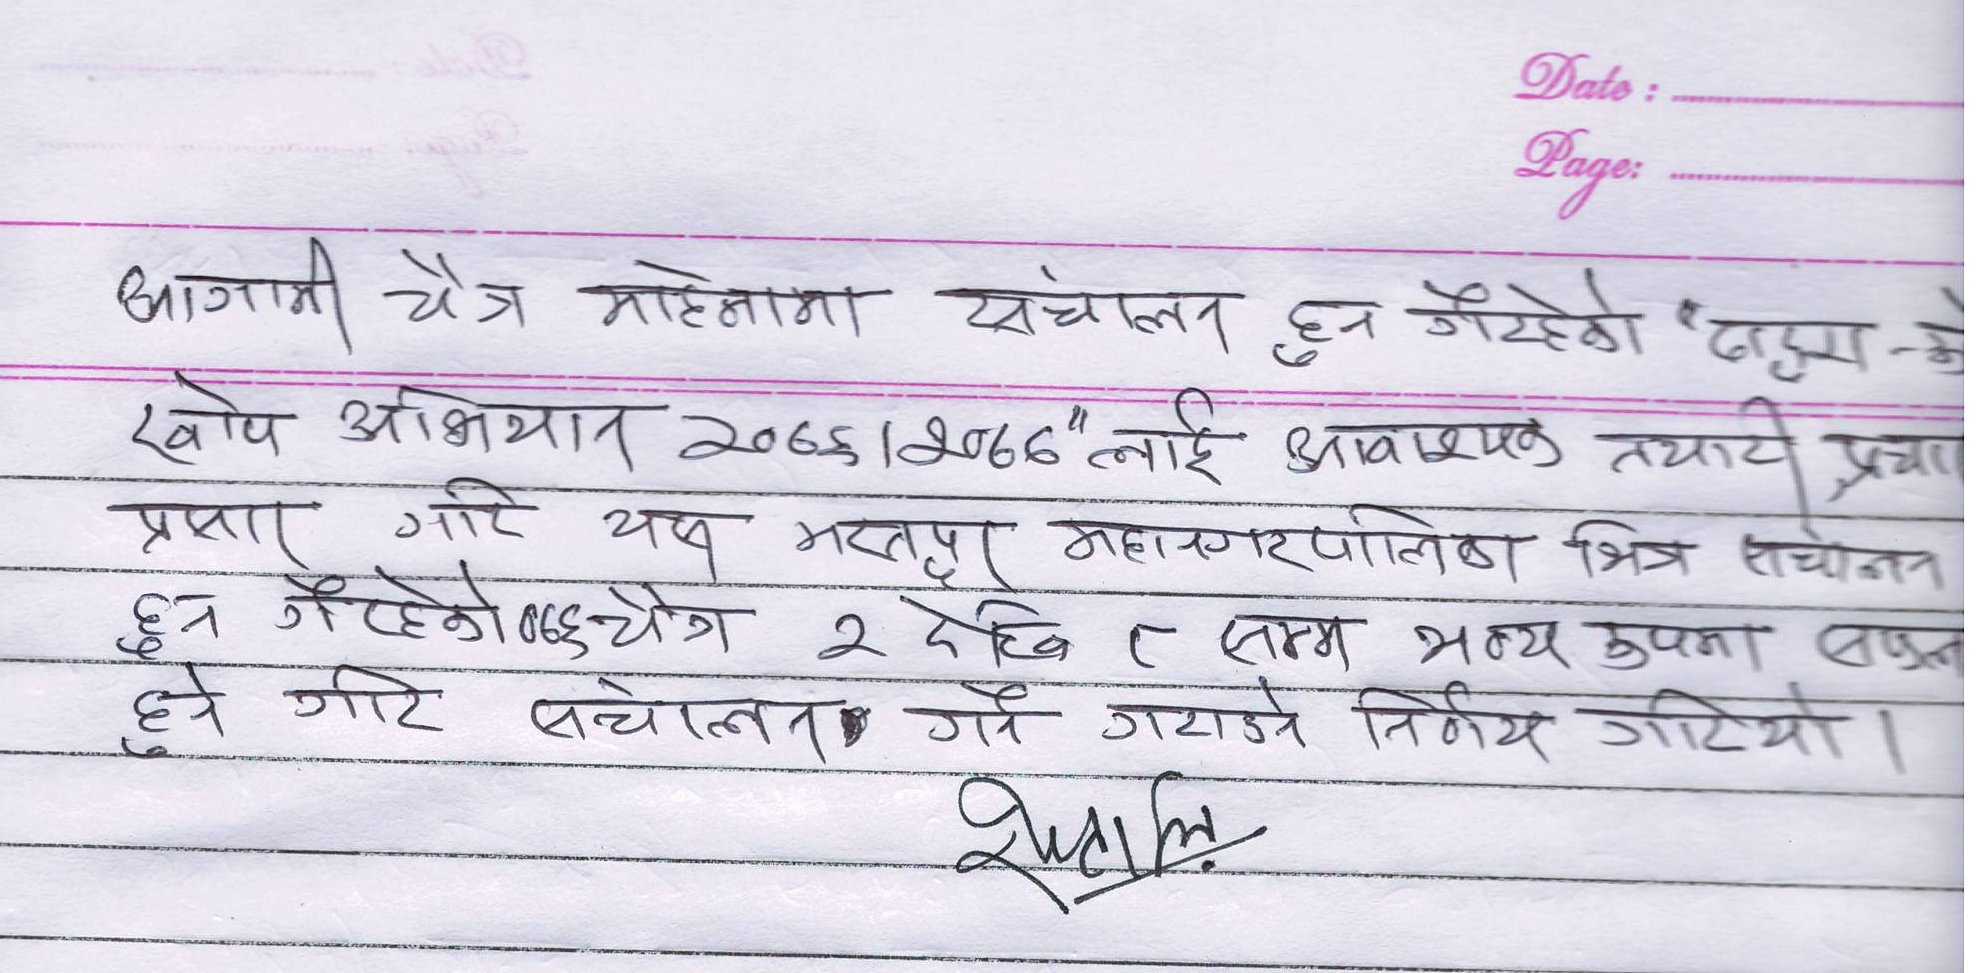 Date :
Page:
आगामी चैत्र महिनामा संचालन हुन गैरहेको "दादुरा-
खोप अभियान २०७६/२०७७" लाई आवाश्यक तयारी प्रचा
प्रसार गरि यस भरतपुर महानगरपालिका भित्र संचालन
हुन गैरहेको ०७६ चैत्र २ देखि ८ सम्म भव्य रुपमा सफल
हुने गरि संचालन गर्ने गराउने निर्णय गरियो ।